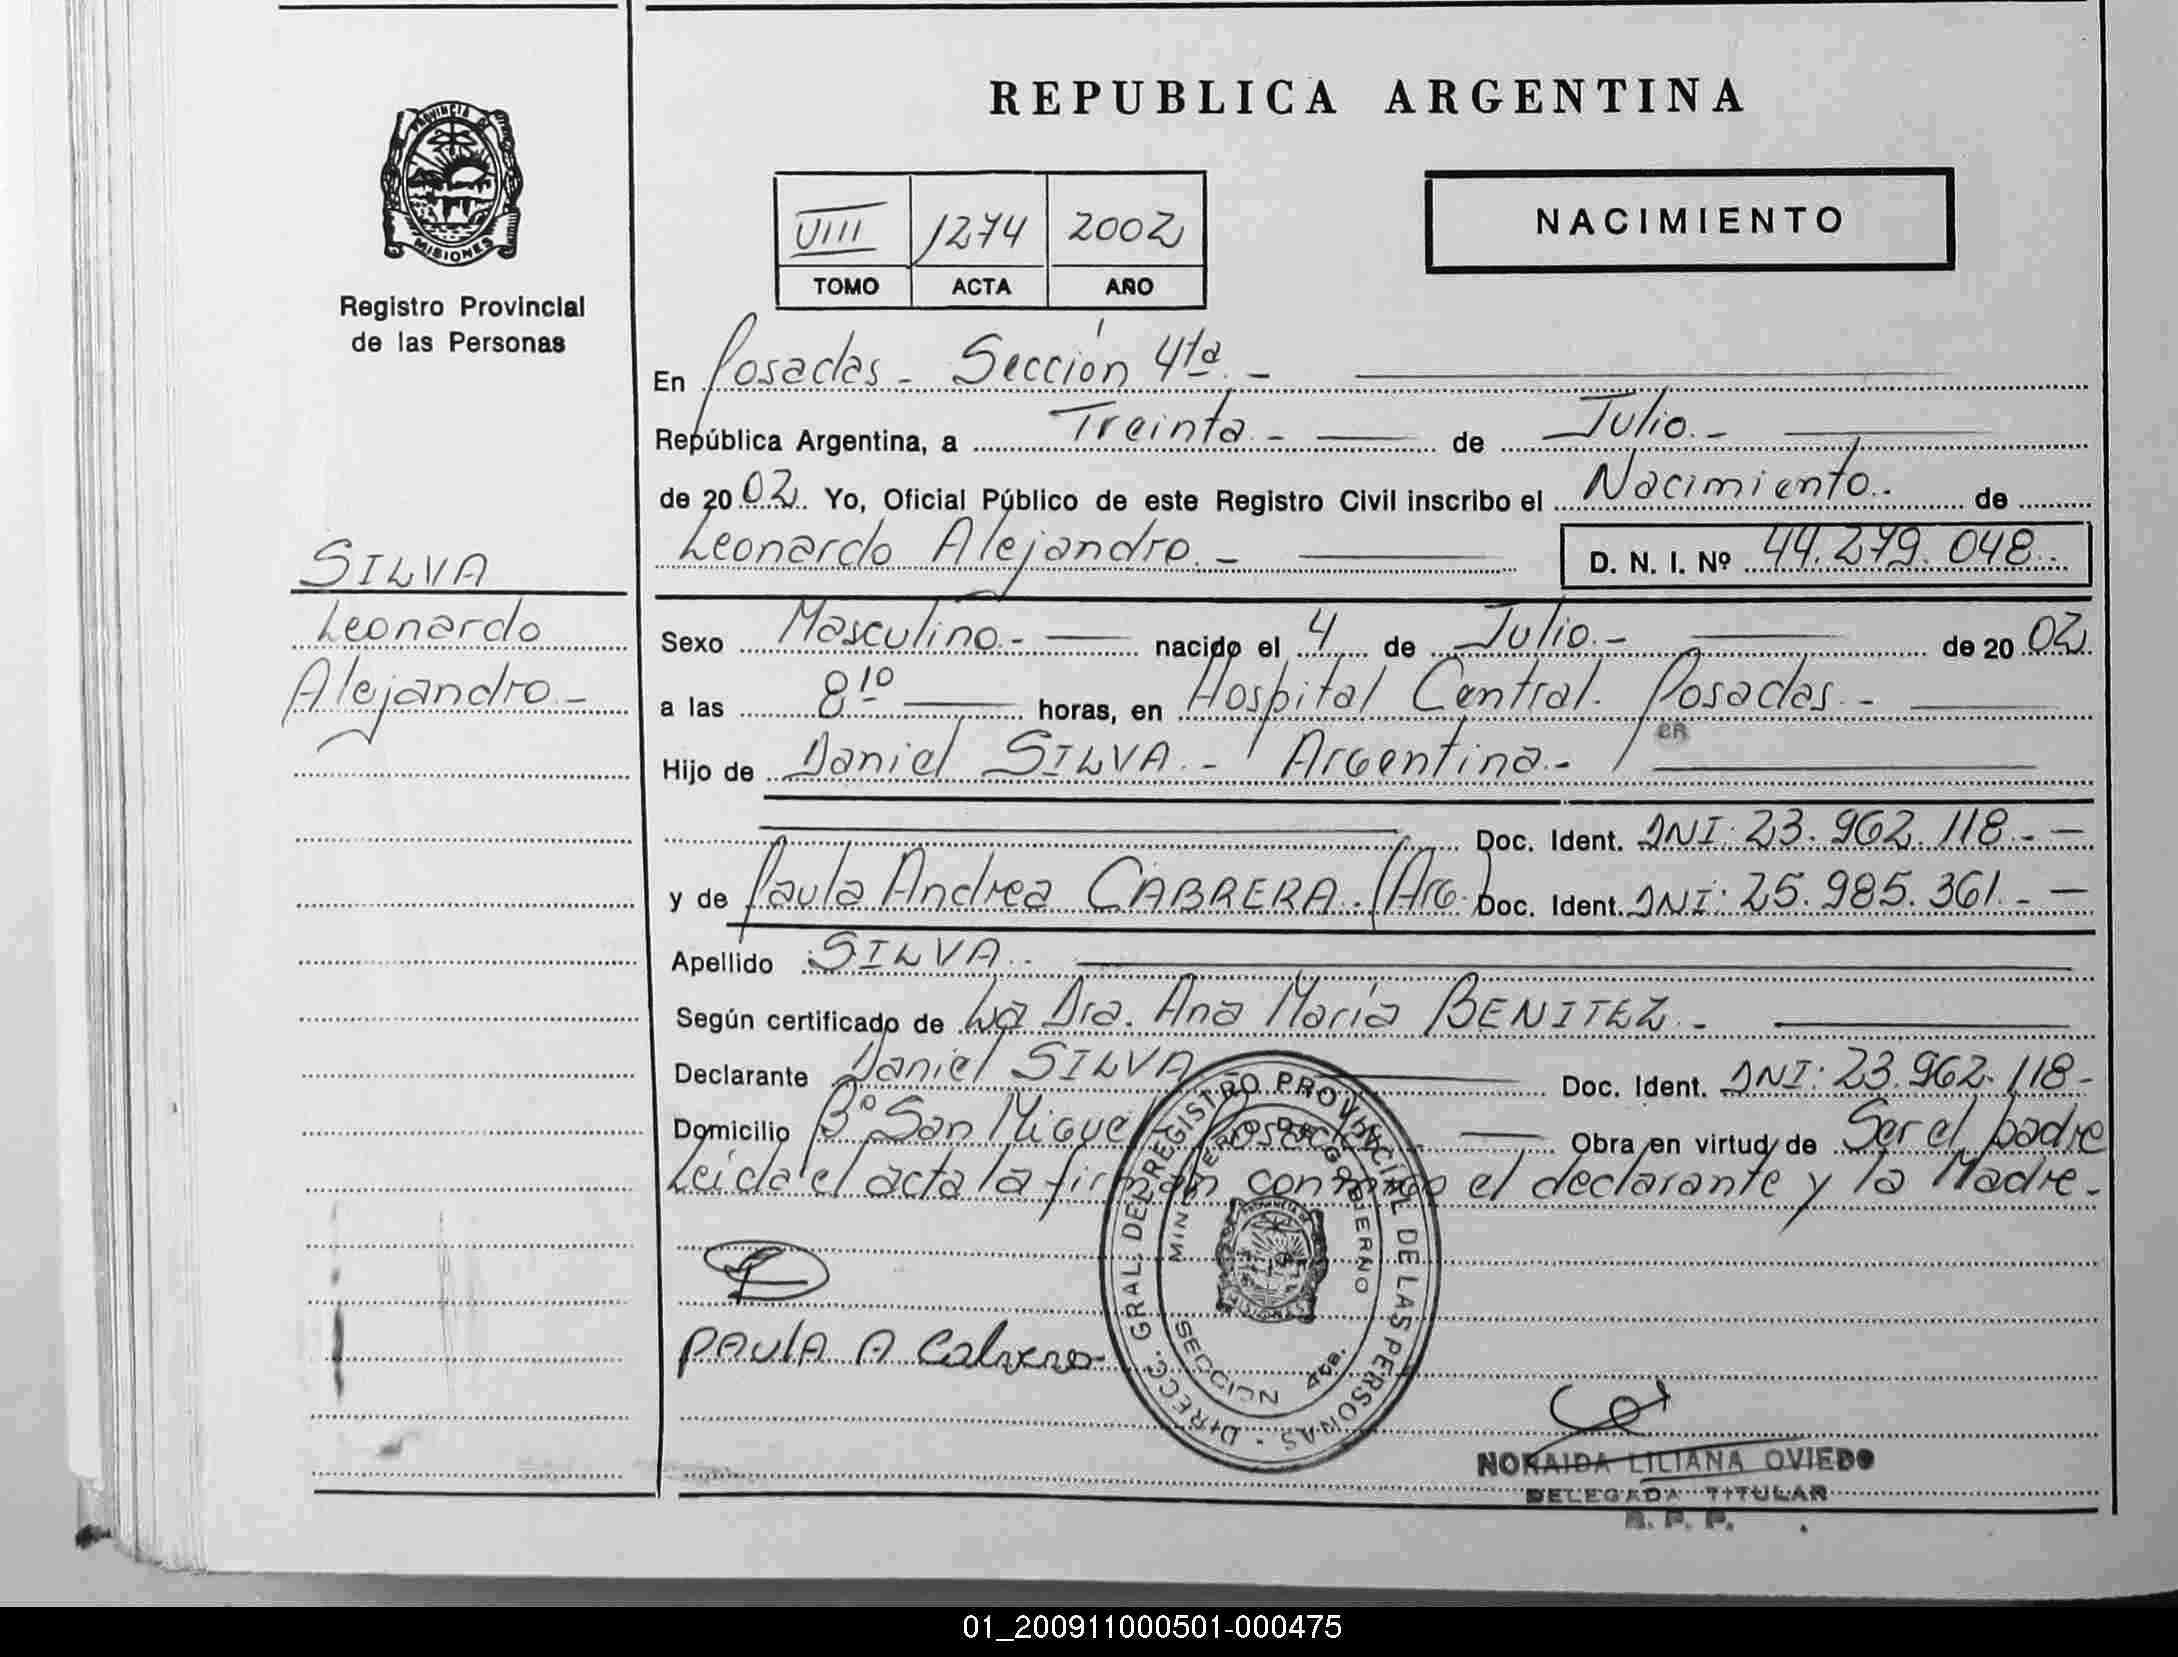 REPUBLICA ARGENTINA
PROVINCIA DE
MISIONES
Registro Provincial
de las Personas
VIII 1274 2002
TOMO ACTA AÑO
NACIMIENTO
En Posadas - Sección 4ta. -
República Argentina, a Treinta. - de Julio. -
de 2002. Yo, Oficial Público de este Registro Civil inscribo el Nacimiento. de
Leonardo Alejandro. - D. N. I. Nº 44.279.048.
SILVA
Leonardo
Alejandro. -
Sexo Masculino. - nacido el 4 de Julio. - de 2002
a las 8 10 horas, en Hospital Central. Posadas. -
Hijo de Daniel SILVA. - Argentina. -
Doc. Ident. DNI: 23.962.118. -
y de Paula Andrea CABRERA. (Arg.) Doc. Ident. DNI: 25.985.361. -
Apellido SILVA.
Según certificado de La Dra. Ana María BENITEZ. -
Declarante Daniel SILVA Doc. Ident. DNI: 23.962.118 -
Domicilio Bº San Miguel Posadas. - Obra en virtud de Ser el padre
Leída el acta la firman conmigo el declarante y la Madre. -
PAULA A Cabrera
DIRECC. GRAL. DEL REGISTRO PROVINCIAL DE LAS PERSONAS
MINISTERIO DE GOBIERNO
SECCION 4ta.
NORAIDA LILIANA OVIEDO
DELEGADA TITULAR
R. P. P.
01_200911000501-000475